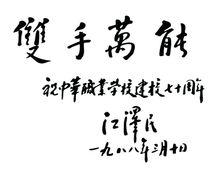 雙手萬能
祝中華職業学校建校七十周年
江澤民
一九八八年三月十日